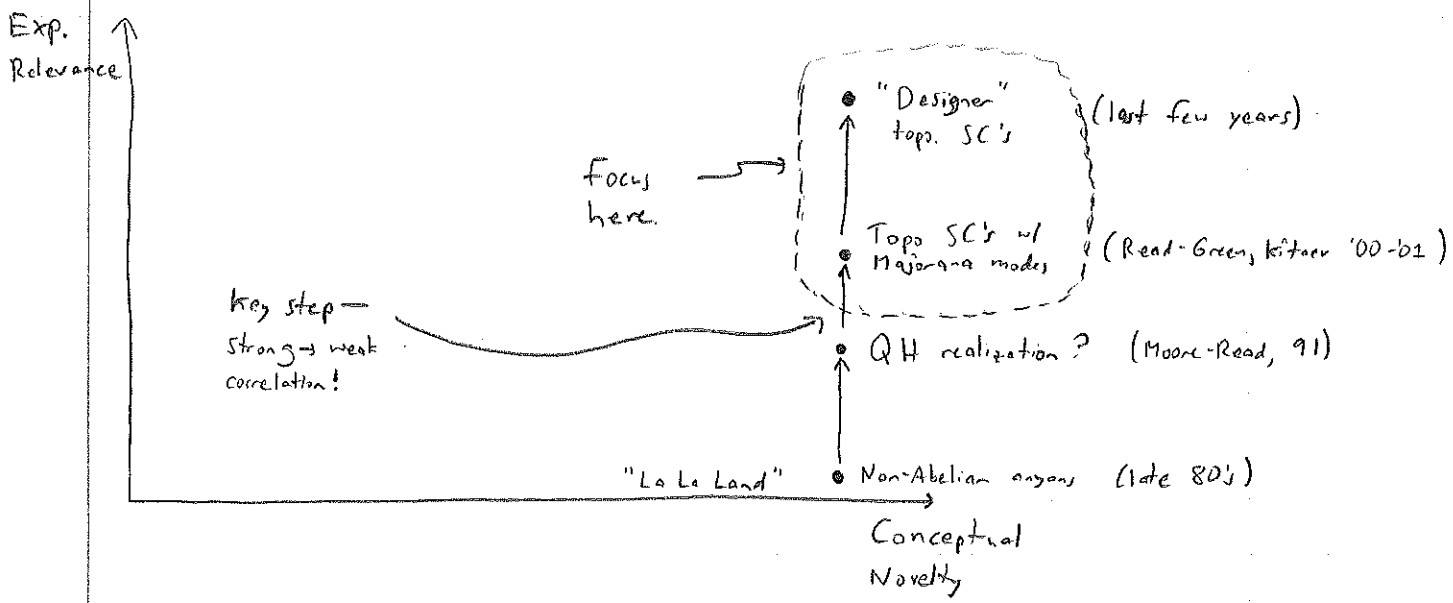 Exp.
Relevance
"Designer"
topo. SC's
(last few years)
Focus
here.
Topo SC's w/
Majorana modes
(Read-Green, Kitaev '00-'01)
Key step —
strong → weak
correlation!
QH realization? (Moore-Read, 91)
"La La Land"
Non-Abelian anyons (late 80's)
Conceptual
Novelty